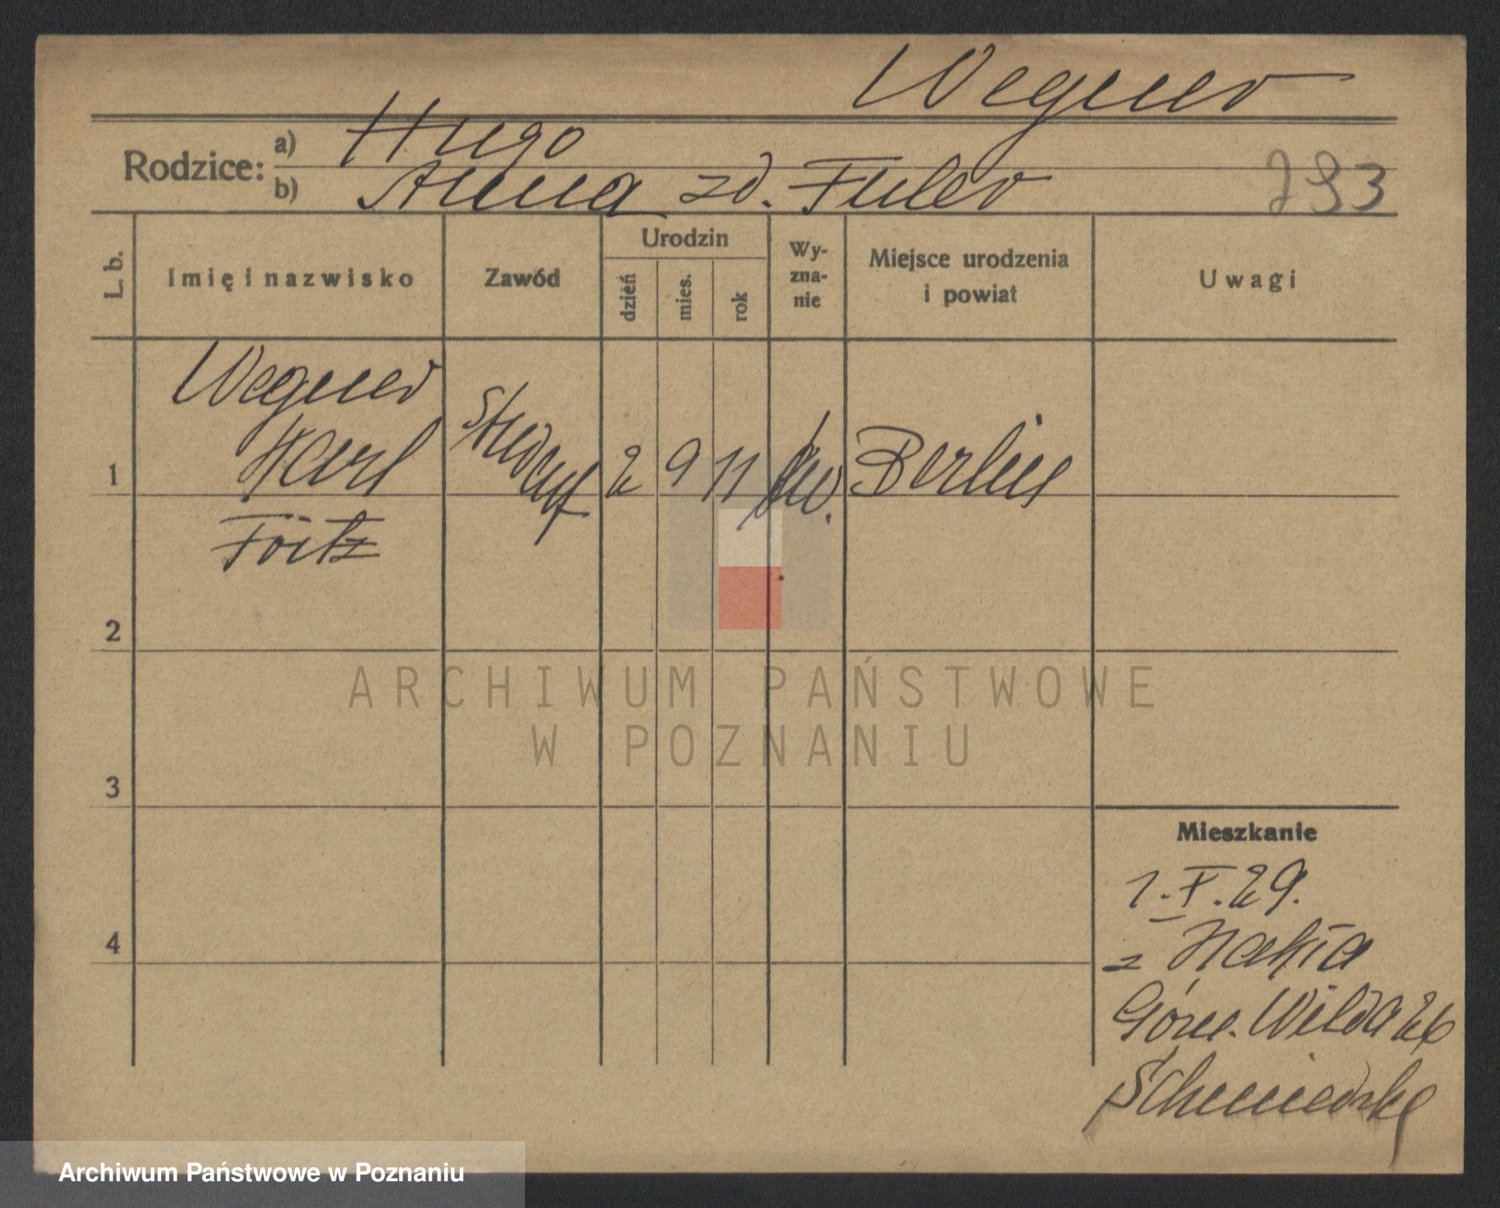 Wegner
Rodzice: a) Hugo
b) Anna zd. Fuler
293
L. b.
Imię i nazwisko
Zawód
Urodzin
dzień
mies.
rok
Wy-
zna-
nie
Miejsce urodzenia
i powiat
Uwagi
1
Wegner
Karl
Fritz
Student
2 9 11
ew.
Berlin
2
3
4
Mieszkanie
1.X.29.
z Nakła
Górn. Wilda 26
ARCHIWUM PAŃSTWOWE
W POZNANIU
Archiwum Państwowe w Poznaniu